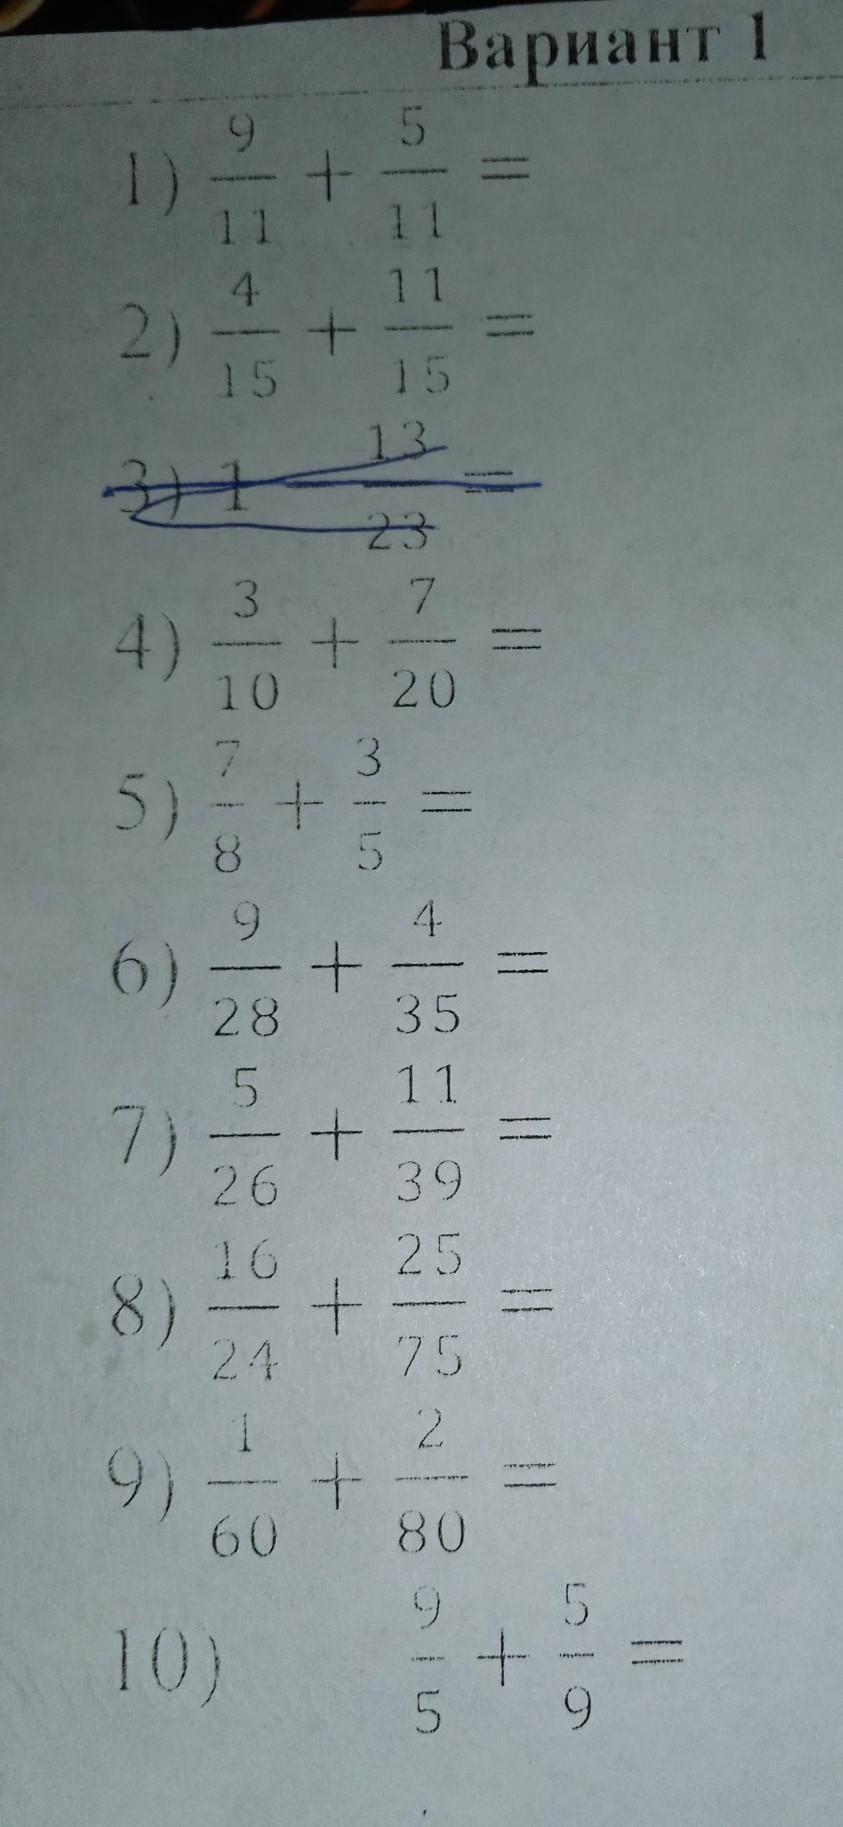 Вариант 1
1) 9/11 + 5/11 =
2) 4/15 + 11/15 =
3) 1 - 13/23 =
4) 3/10 + 7/20 =
5) 7/8 + 3/5 =
6) 9/28 + 4/35 =
7) 5/26 + 11/39 =
8) 16/24 + 25/75 =
9) 1/60 + 2/80 =
10) 9/5 + 5/9 =